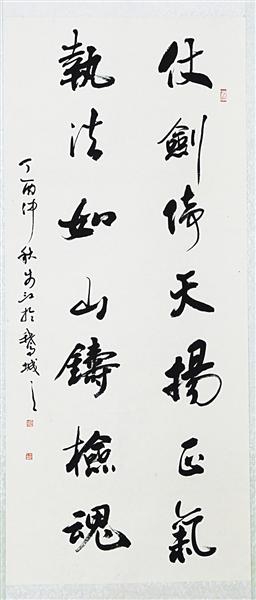 仗劍倚天揚正氣
執法如山鑄檢魂
丁酉仲秋
於鵝城